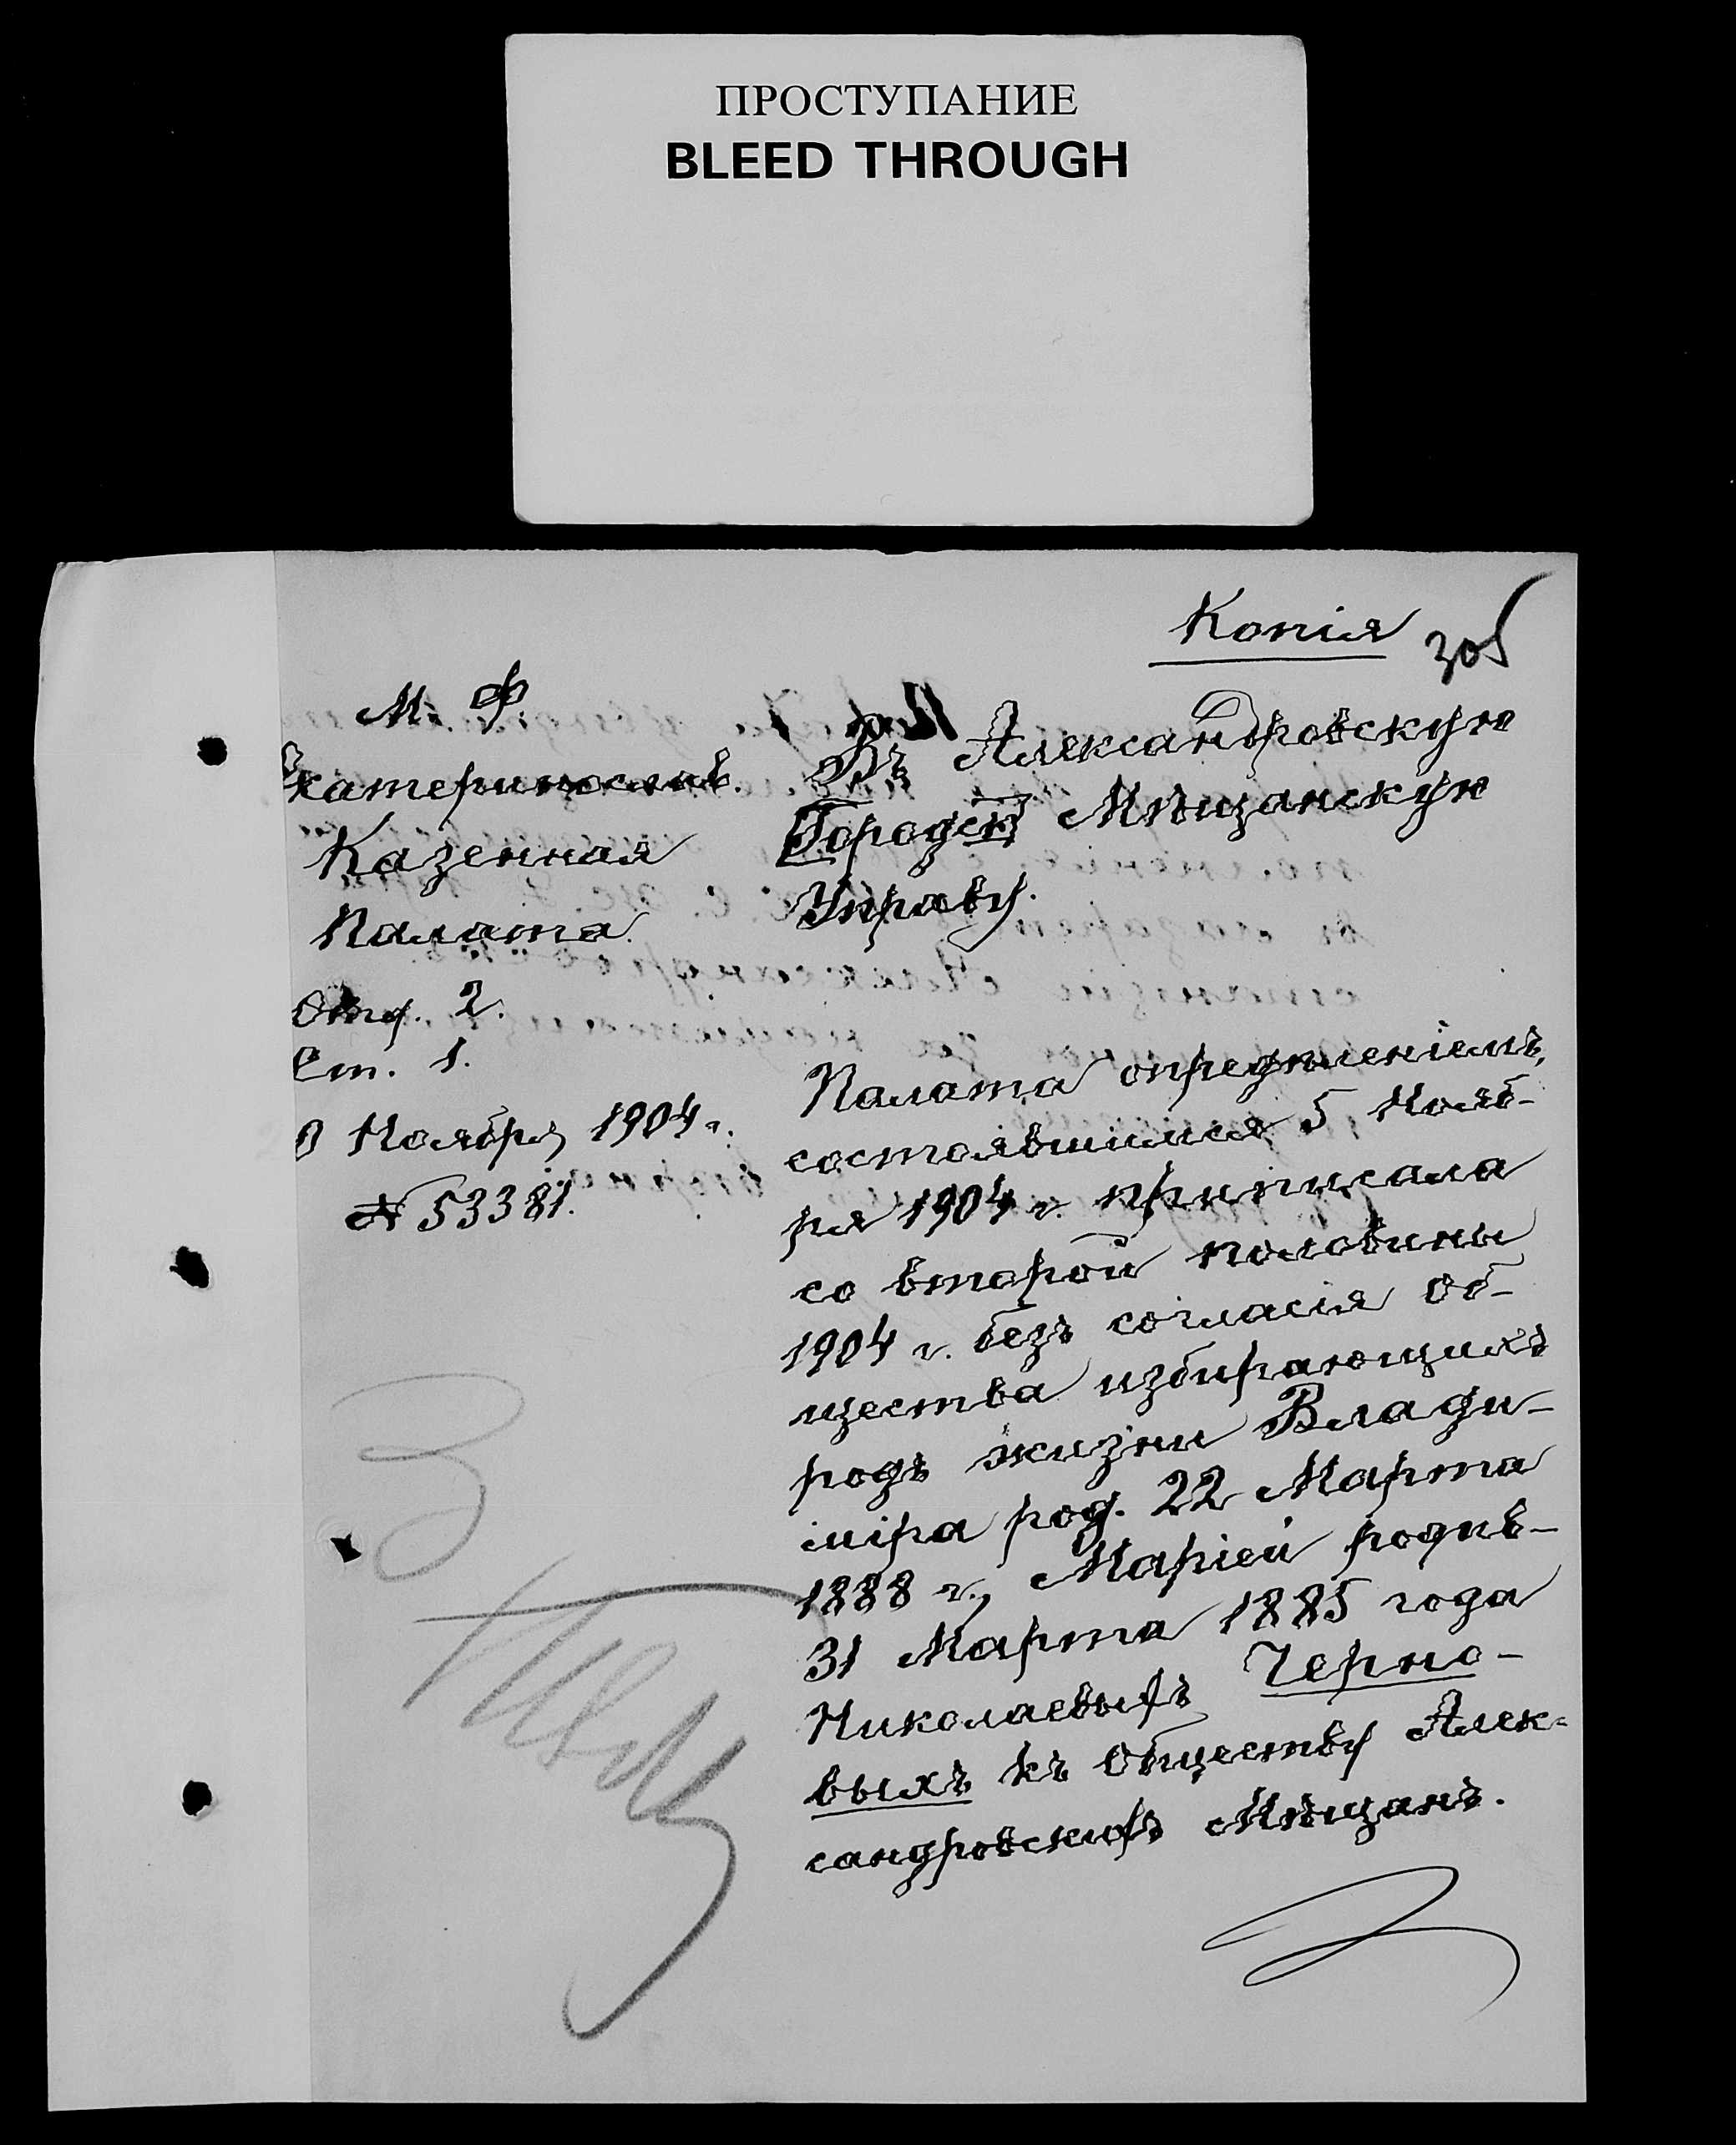 ПРОСТУПАНИЕ
BLEED THROUGH
Копія
305
М. Ф.
Екатеринослав.
Казенная
Палата.
Отд. 2.
Ст. 1.
Ноября 1904 г.
№ 53381.
Въ Александровскую
Мѣщанскую
Управу.
Палата опредѣленіемъ,
состоявшимся 5 Нояб-
ря 1904 г. приписала
со второй половины
1904 г. безъ согласія об-
щества избирающихъ
родъ жизни Влади-
міра род. 22 Марта
1888 г., Марію родив-
31 Марта 1885 года
Николаевыхъ Черно-
выхъ къ обществу Алек-
сандровскихъ Мѣщанъ.